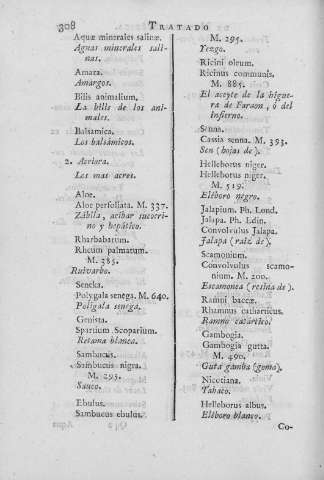 308 TRATADO
Aquæ minerales salinæ.
Aguas minerales sali-
nas.
Amara.
Amargos.
Bilis animalium.
La bilis de los ani-
males.
Balsamica.
Los balsámicos.
2. Acriora.
Los mas acres.
Aloe.
Aloe perfoliata. M. 337.
Zábila, acibar sucotri-
no y hepático.
Rharbabarum.
Rheum palmatum.
M. 385.
Ruibarbo.
Seneka.
Polygala senega. M. 640.
Poligala senega.
Genista.
Spartium Scoparium.
Retama blanca.
Sambucus.
Sambucus nigra.
M. 295.
Sauco.
Ebulus.
Sambucus ebulus.
M. 295.
Yezgo.
Ricini oleum.
Ricinus communis.
M. 885.
El aceyte de la higue-
ra de Faraon, ó del
infierno.
Senna.
Cassia senna. M. 393.
Sen (hojas de).
Helleborus niger.
Helleborus niger.
M. 519.
Eléboro negro.
Jalapium. Ph. Lond.
Jalapa. Ph. Edin.
Convolvulus Jalapa.
Jalapa (raiz de).
Scamonium.
Convolvulus scamo-
nium. M. 200.
Escamonea (resina de).
Ramni baccæ.
Rhamnus catharticus.
Ramno catártico.
Gambogia.
Gambogia gutta.
M. 490.
Guta gamba (goma).
Nicotiana.
Tabaco.
Helleborus albus.
Eléboro blanco.
Co-